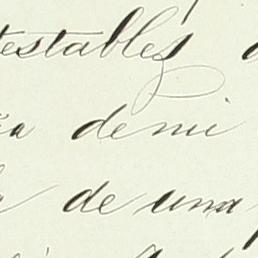 testables
de mi
de una